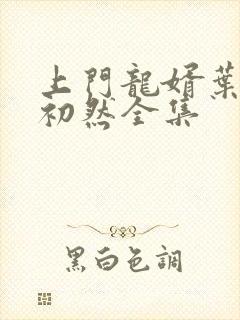 上門龍婿葉
初然全集
黑白色調